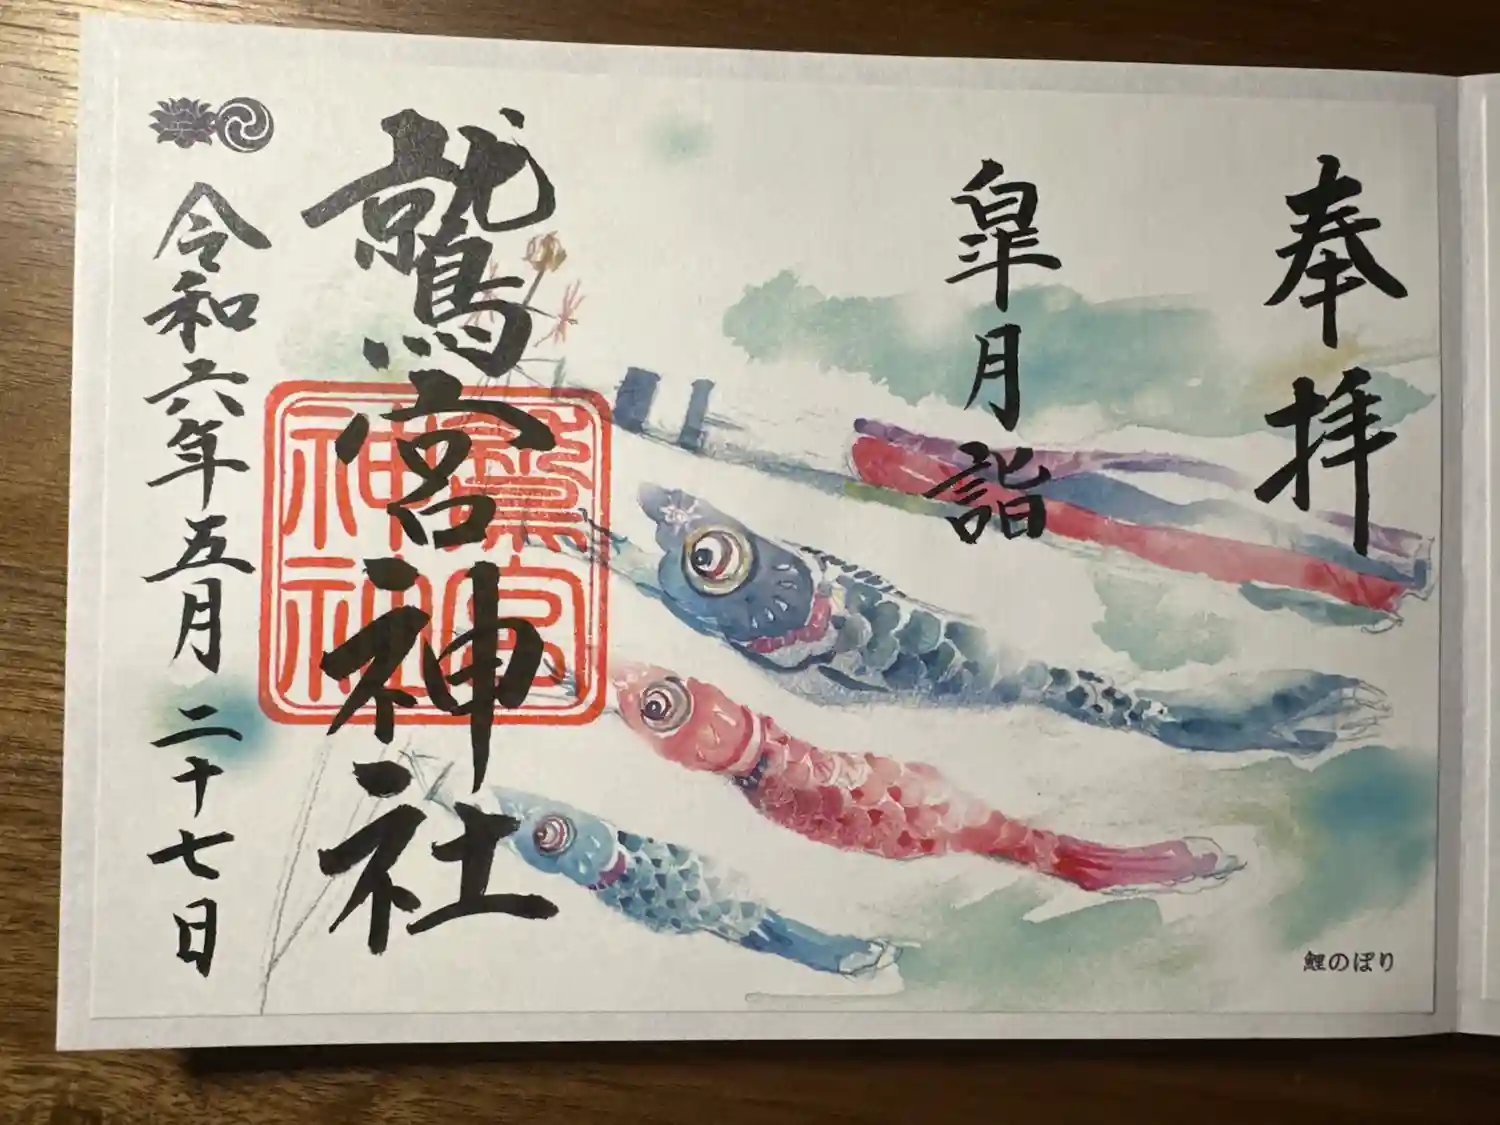 奉拝
皐月詣
鷲宮神社
鷲宮
神社
令和六年五月二十七日
鯉のぼり